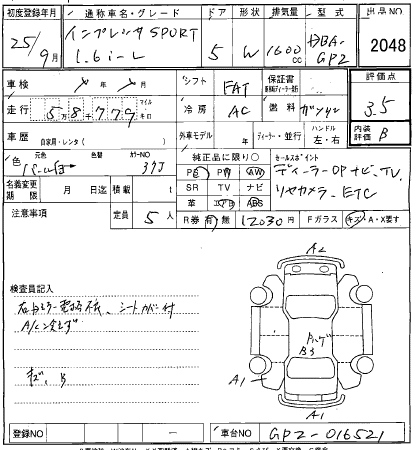 初度登録年月 通称車名・グレード ドア 形状 排気量 型式 出品NO
25/9月 インプレッサ SPORT 1.6i-L 5 W 1600cc DBA-GP2 2048
車検 年 月 シフト FAT 保証書 評価点
走行 58779 マイル キロ 冷房 AC 燃料 ガソリン 3.5
車歴 自家用・レンタ( ) 外車モデル ディーラー・並行 ハンドル 左・右 内装評価 B
色 元色 パール白 色替 カラーNO 37J 純正品に限り○ セールスポイント
PS PW AW ディーラーOPナビ、TV、
名義変更期限 月 日迄 積載 t SR TV ナビ リヤカメラ、ETC
革 エアB ABS
注意事項 定員 5人 R券 有 無 12030円 Fガラス キズ・A・X要す
A2
検査員記入
シートカバー付
キズ、
B3
A1
A1
登録NO 車台NO GP2-016521